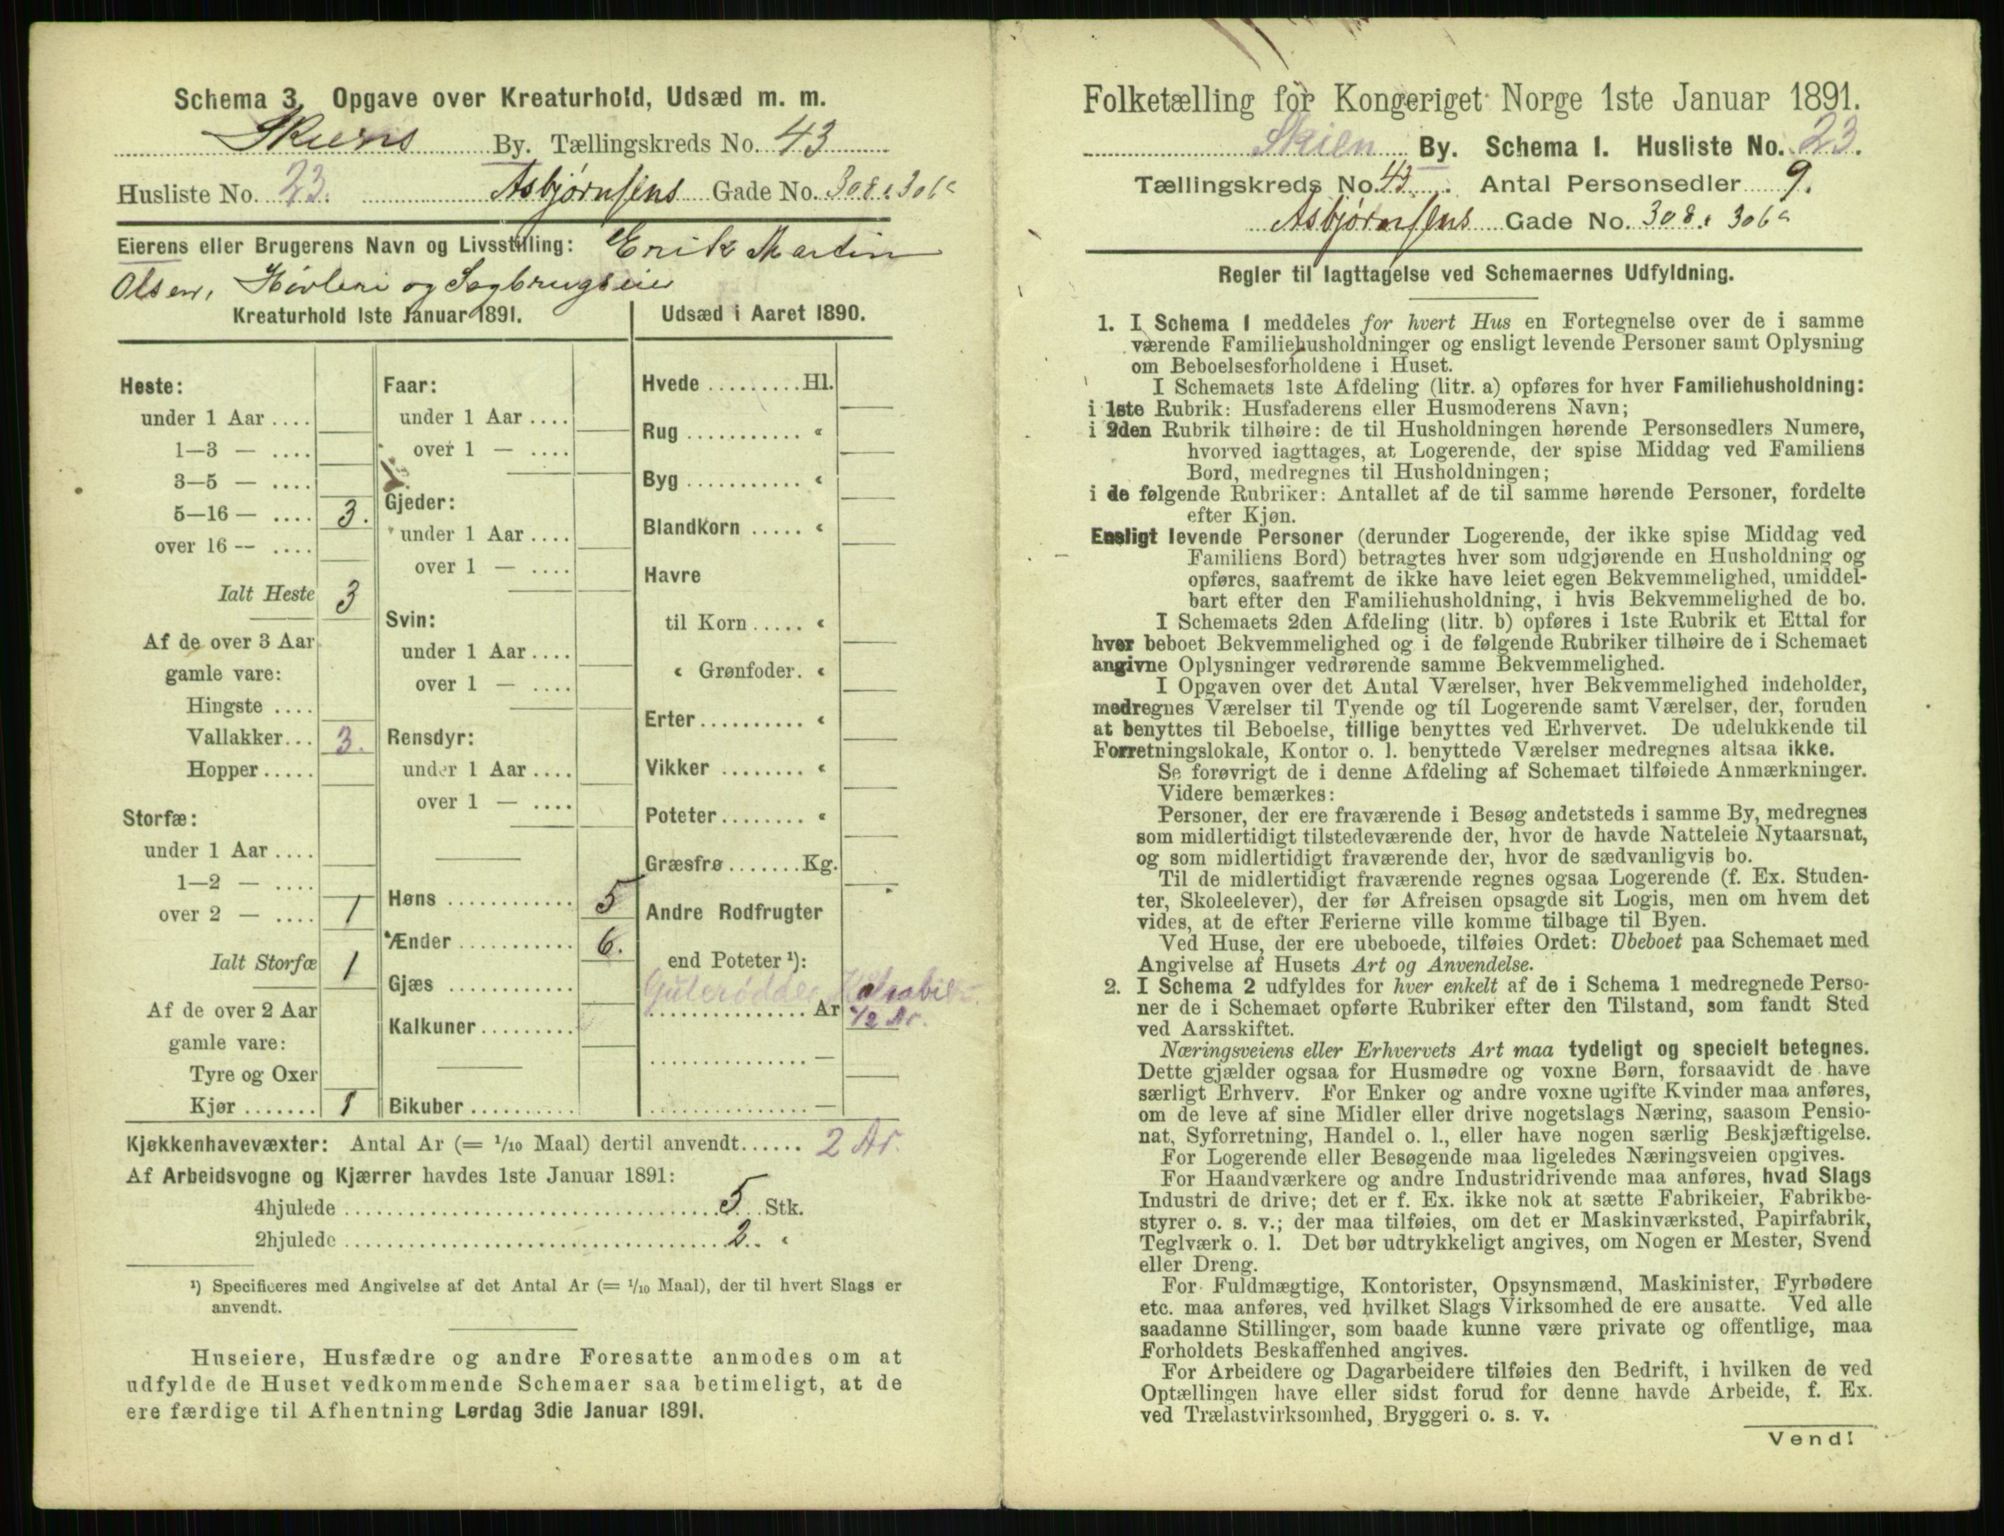 Schema 3. Opgave over Kreaturhold, Udsæd m. m.
Skiens By. Tællingskreds No. 43
Husliste No. 23. Asbjørnsens Gade No. 308 & 306a
Eierens eller Brugerens Navn og Livsstilling: Erik Martin
Olsen, Høvleri og Sagbrugseier
Kreaturhold 1ste Januar 1891.
Heste:
under 1 Aar ....
1—3 — ....
3—5 — ....
5—16 — .... 3.
over 16 — ....
Ialt Heste 3
Af de over 3 Aar
gamle vare:
Hingste ....
Vallakker... 3.
Hopper.....
Storfæ:
under 1 Aar ....
1—2 — ....
over 2 — .... 1
Ialt Storfæ 1
Af de over 2 Aar
gamle vare:
Tyre og Oxer
Kjør ....... 1
Faar:
under 1 Aar ....
over 1 — ....
Gjeder:
under 1 Aar ....
over 1 — ....
Svin:
under 1 Aar ....
over 1 — ....
Rensdyr:
under 1 Aar ....
over 1 — ....
Høns ............ 5
Ænder ........... 6.
Gjæs ............
Kalkuner.........
Bikuber ..........
Udsæd i Aaret 1890.
Hvede .........Hl.
Rug ........... «
Byg ........... «
Blandkorn ..... «
Havre
til Korn ..... «
« Grønfoder. «
Erter.......... «
Vikker ........ «
Poteter........ «
Græsfrø .......Kg.
Andre Rodfrugter
end Poteter ¹):
Gulerødder
............... Ar 1/2 Ar.
............... —
............... —
Kjøkkenhavevæxter: Antal Ar (= 1/10 Maal) dertil anvendt...... 2 Ar.
Af Arbeidsvogne og Kjærrer havdes 1ste Januar 1891:
4hjulede ........................................ 5 Stk.
2hjulede ........................................ 2. «
¹) Specificeres med Angivelse af det Antal Ar (= 1/10 Maal), der til hvert Slags er
anvendt.
Huseiere, Husfædre og andre Foresatte anmodes om at
udfylde de Huset vedkommende Schemaer saa betimeligt, at de
ere færdige til Afhentning Lørdag 3die Januar 1891.
Folketælling for Kongeriget Norge 1ste Januar 1891.
Skien By. Schema 1. Husliste No. 23.
Tællingskreds No. 43. Antal Personsedler 9.
Asbjørnsens Gade No. 308 & 306a
Regler til Iagttagelse ved Schemaernes Udfyldning.
1. I Schema 1 meddeles for hvert Hus en Fortegnelse over de i samme
værende Familiehusholdninger og ensligt levende Personer samt Oplysning
om Beboelsesforholdene i Huset.
I Schemaets 1ste Afdeling (litr. a) opføres for hver Familiehusholdning:
i 1ste Rubrik: Husfaderens eller Husmoderens Navn;
i 2den Rubrik tilhøire: de til Husholdningen hørende Personsedlers Numere,
hvorved iagttages, at Logerende, der spise Middag ved Familiens
Bord, medregnes til Husholdningen;
i de følgende Rubriker: Antallet af de til samme hørende Personer, fordelte
efter Kjøn.
Ensligt levende Personer (derunder Logerende, der ikke spise Middag ved
Familiens Bord) betragtes hver som udgjørende en Husholdning og
opføres, saafremt de ikke have leiet egen Bekvemmelighed, umiddel-
bart efter den Familiehusholdning, i hvis Bekvemmelighed de bo.
I Schemaets 2den Afdeling (litr. b) opføres i 1ste Rubrik et Ettal for
hver beboet Bekvemmelighed og i de følgende Rubriker tilhøire de i Schemaet
angivne Oplysninger vedrørende samme Bekvemmelighed.
I Opgaven over det Antal Værelser, hver Bekvemmelighed indeholder,
medregnes Værelser til Tyende og til Logerende samt Værelser, der, foruden
at benyttes til Beboelse, tillige benyttes ved Erhvervet. De udelukkende til
Forretningslokale, Kontor o. l. benyttede Værelser medregnes altsaa ikke.
Se forøvrigt de i denne Afdeling af Schemaet tilføiede Anmærkninger.
Videre bemærkes:
Personer, der ere fraværende i Besøg andetsteds i samme By, medregnes
som midlertidigt tilstedeværende der, hvor de havde Natteleie Nytaarsnat,
og som midlertidigt fraværende der, hvor de sædvanligvis bo.
Til de midlertidigt fraværende regnes ogsaa Logerende (f. Ex. Studen-
ter, Skoleelever), der før Afreisen opsagde sit Logis, men om hvem det
vides, at de efter Ferierne ville komme tilbage til Byen.
Ved Huse, der ere ubeboede, tilføies Ordet: Ubeboet paa Schemaet med
Angivelse af Husets Art og Anvendelse.
2. I Schema 2 udfyldes for hver enkelt af de i Schema 1 medregnede Perso-
ner de i Schemaet opførte Rubriker efter den Tilstand, som fandt Sted
ved Aarsskiftet.
Næringsveiens eller Erhvervets Art maa tydeligt og specielt betegnes.
Dette gjælder ogsaa for Husmødre og voxne Børn, forsaavidt de have
særligt Erhverv. For Enker og andre voxne ugifte Kvinder maa anføres,
om de leve af sine Midler eller drive nogetslags Næring, saasom Pensio-
nat, Syforretning, Handel o. l., eller have nogen særlig Beskjæftigelse.
For Logerende eller Besøgende maa ligeledes Næringsveien opgives.
For Haandværkere og andre Industridrivende maa anføres, hvad Slags
Industri de drive; det er f. Ex. ikke nok at sætte Fabrikeier, Fabrikbe-
styrer o. s. v.; der maa tilføies, om det er Maskinværksted, Papirfabrik,
Teglværk o. l. Det bør udtrykkeligt angives, om Nogen er Mester, Svend
eller Dreng.
For Fuldmægtige, Kontorister, Opsynsmænd, Maskinister, Fyrbødere
etc. maa anføres, ved hvilket Slags Virksomhed de ere ansatte. Ved alle
saadanne Stillinger, som baade kunne være private og offentlige, maa
Forholdets Beskaffenhed angives.
For Arbeidere og Dagarbeidere tilføies den Bedrift, i hvilken de ved
Optællingen have eller sidst forud for denne havde Arbeide, f. Ex.
ved Trælastvirksomhed, Bryggeri o. s. v.
Vend!